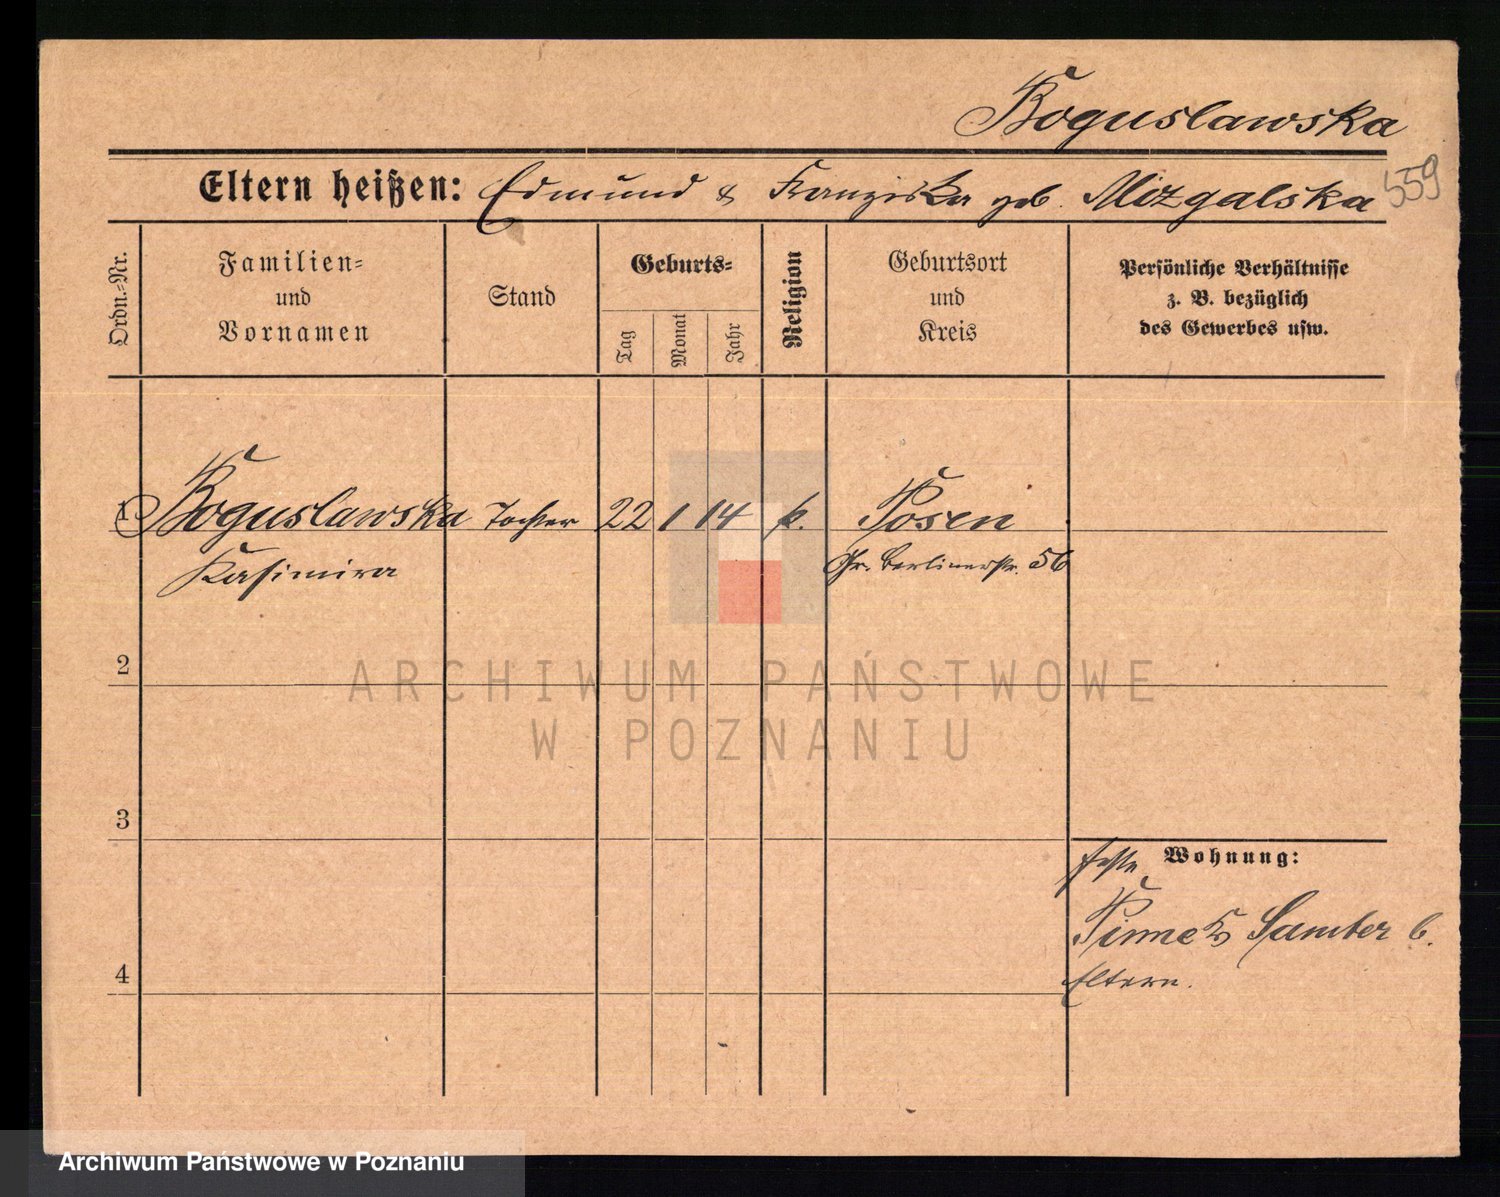 Boguslawska
559
Eltern heißen: Edmund & Franziska geb. Mizgalska
Ordn.-Nr.
Familien-
und
Vornamen
Stand
Geburts-
Tag
Monat
Jahr
Religion
Geburtsort
und
Kreis
Persönliche Verhältnisse
z. B. bezüglich
des Gewerbes usw.
1 Boguslawska Tochter 22 1 14 k. Posen
Kasimira Gr. Berlinerstr. 56
2
ARCHIWUM PAŃSTWOWE
W POZNANIU
3
feste Wohnung:
Pinne Samter b.
Eltern.
4
Archiwum Państwowe w Poznaniu